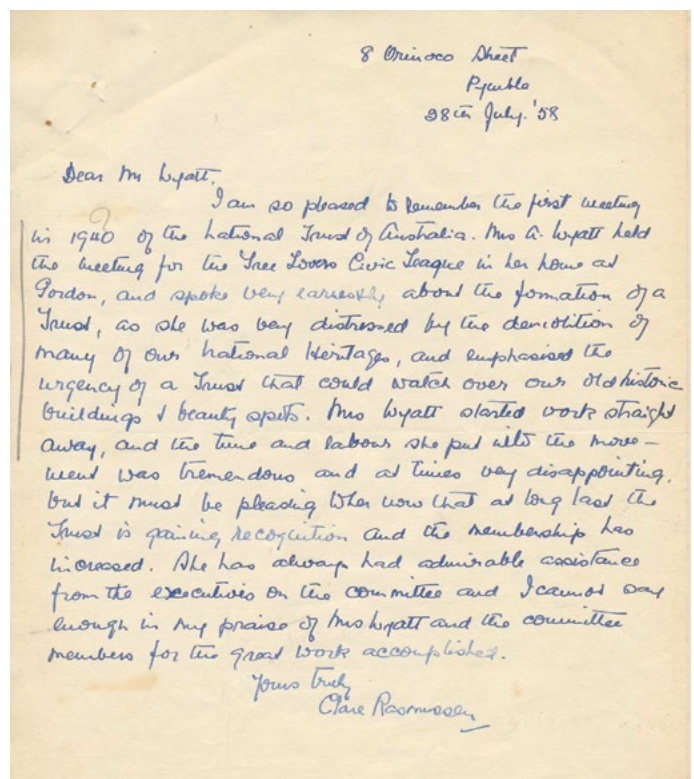 8 Orinoco Street
Pymble
28th July. '58
Dear Mr Wyatt,
I am so pleased to remember the first meeting
?
in 1940 of the National Trust of Australia. Mrs A. Wyatt held
the meeting for the Tree Lovers Civic League in her home at
Gordon, and spoke very earnestly about the formation of a
Trust, as she was very distressed by the demolition of
many of our National Heritages, and emphasised the
urgency of a Trust that could watch over our old historic
buildings & beauty spots. Mrs Wyatt started work straight
away, and the time and labour she put into the move-
ment was tremendous and at times very disappointing,
but it must be pleasing to her now that at long last the
Trust is gaining recognition and the membership has
increased. She has always had admirable assistance
from the executives on the committee and I cannot say
enough in my praise of Mrs Wyatt and the committee
members for the great work accomplished.
Yours truly
Clare Rasmussen